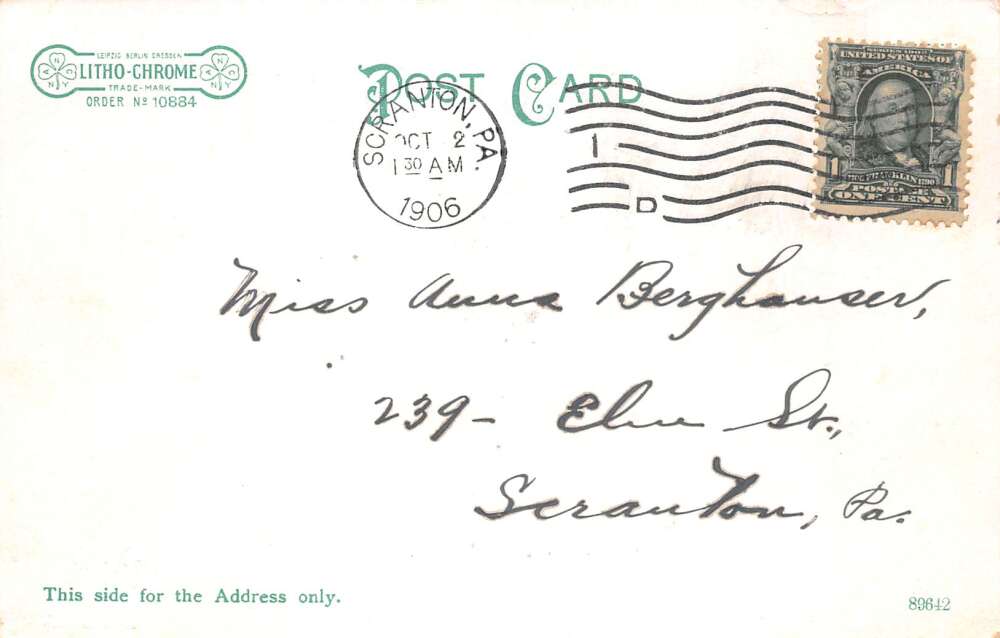 LEIPZIG BERLIN DRESDEN
LITHO-CHROME
TRADE-MARK
ORDER Nº 10884
POST CARD
SCRANTON, PA.
OCT 2
1 30 AM
1906
1
D
SERIES 1902
UNITED STATES OF
AMERICA
1706 FRANKLIN 1790
1 1
POSTAGE
ONE CENT
Miss Anna Berghauser,
239- Elm St.,
Scranton, Pa.
This side for the Address only.
89642